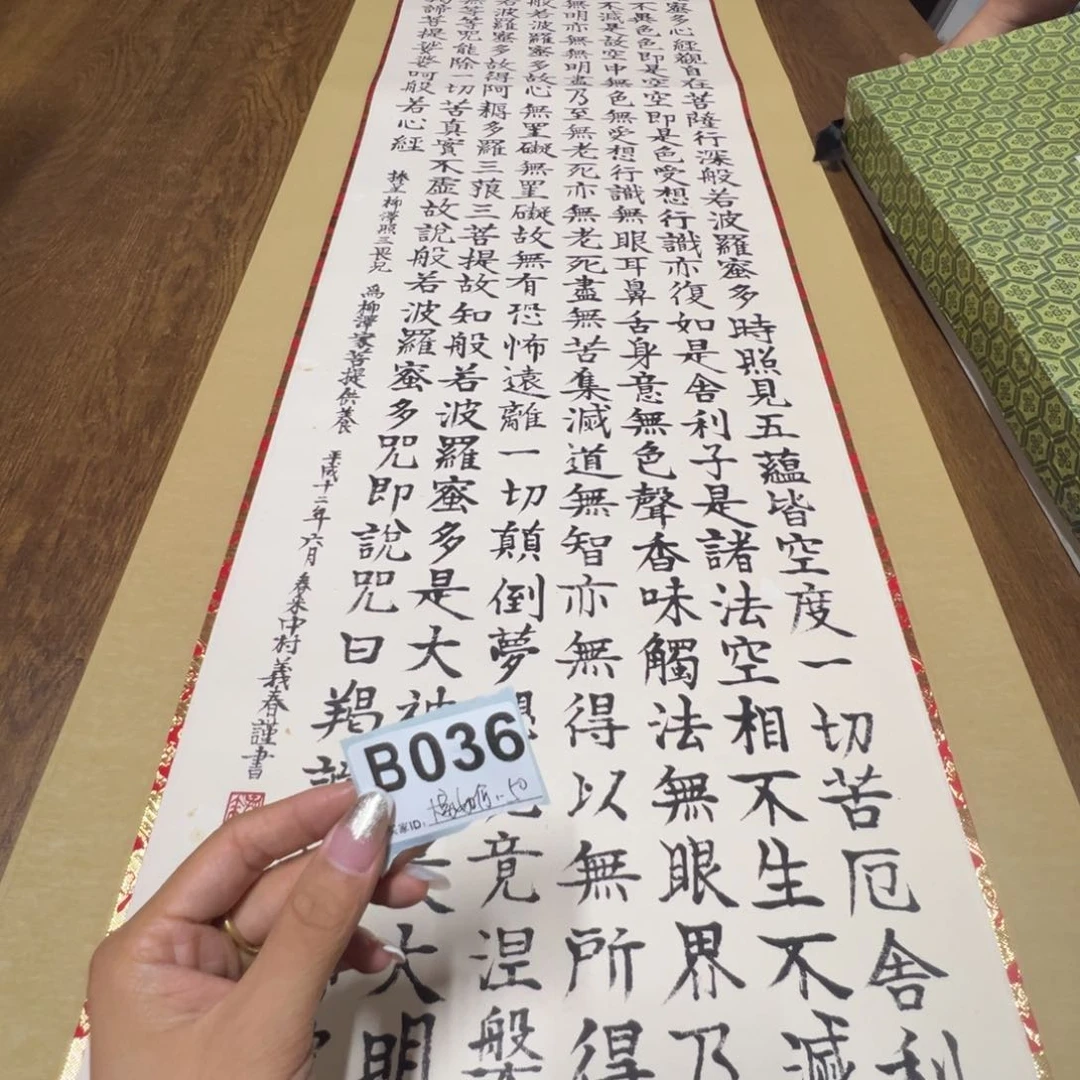 蜜多心經觀自在菩薩行深般若波羅蜜多時照見五蘊皆空度一切苦厄舍利
不異色色即是空空即是色受想行識亦復如是舍利子是諸法空相不生不滅
不減是故空中無色無受想行識無眼耳鼻舌身意無色聲香味觸法無眼界乃
無明亦無無明盡乃至無老死亦無老死盡無苦集滅道無智亦無得以無所得
般若波羅蜜多故心無罣礙無罣礙故無有恐怖遠離一切顛倒夢想竟涅槃
若波羅蜜多故得阿耨多羅三藐三菩提故知般若波羅蜜多是大神大明
無等等咒能除一切苦真實不虛故說般若波羅蜜多咒即說咒曰羯諦
諦菩提娑婆呵般若心經
捧呈柳澤照三畏兄 為柳澤家菩提供養 平成十二年六月 中村義春謹書
B036
家ID: